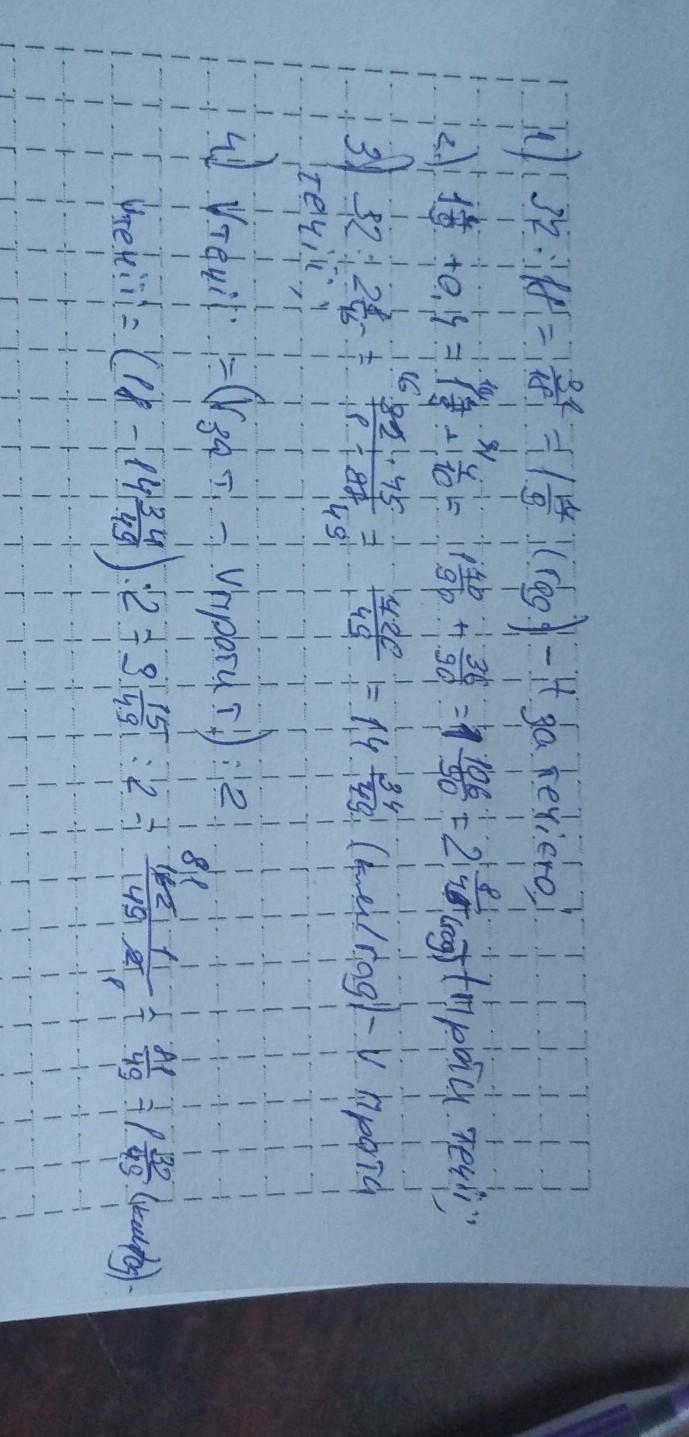 1) 32 : 18 = 32/18 = 1 7/9 (год) – t за течією,
2) 1 7/9 + 0,4 = 1 7/9 + 4/10 = 1 70/90 + 36/90 = 1 106/90 = 2 8/45 (год) t проти течії,
3) 32 : 2 8/45 = 32 · 45 / 1 · 98 = 720/49 = 14 34/49 (км/год) – V проти
течії,
4) Vтечії = (Vза т. – Vпроти т.) : 2
Vтечії = (18 – 14 34/49) : 2 = 3 15/49 : 2 = 162 · 1 / 49 · 2 = 81/49 = 1 32/49 (км/год).